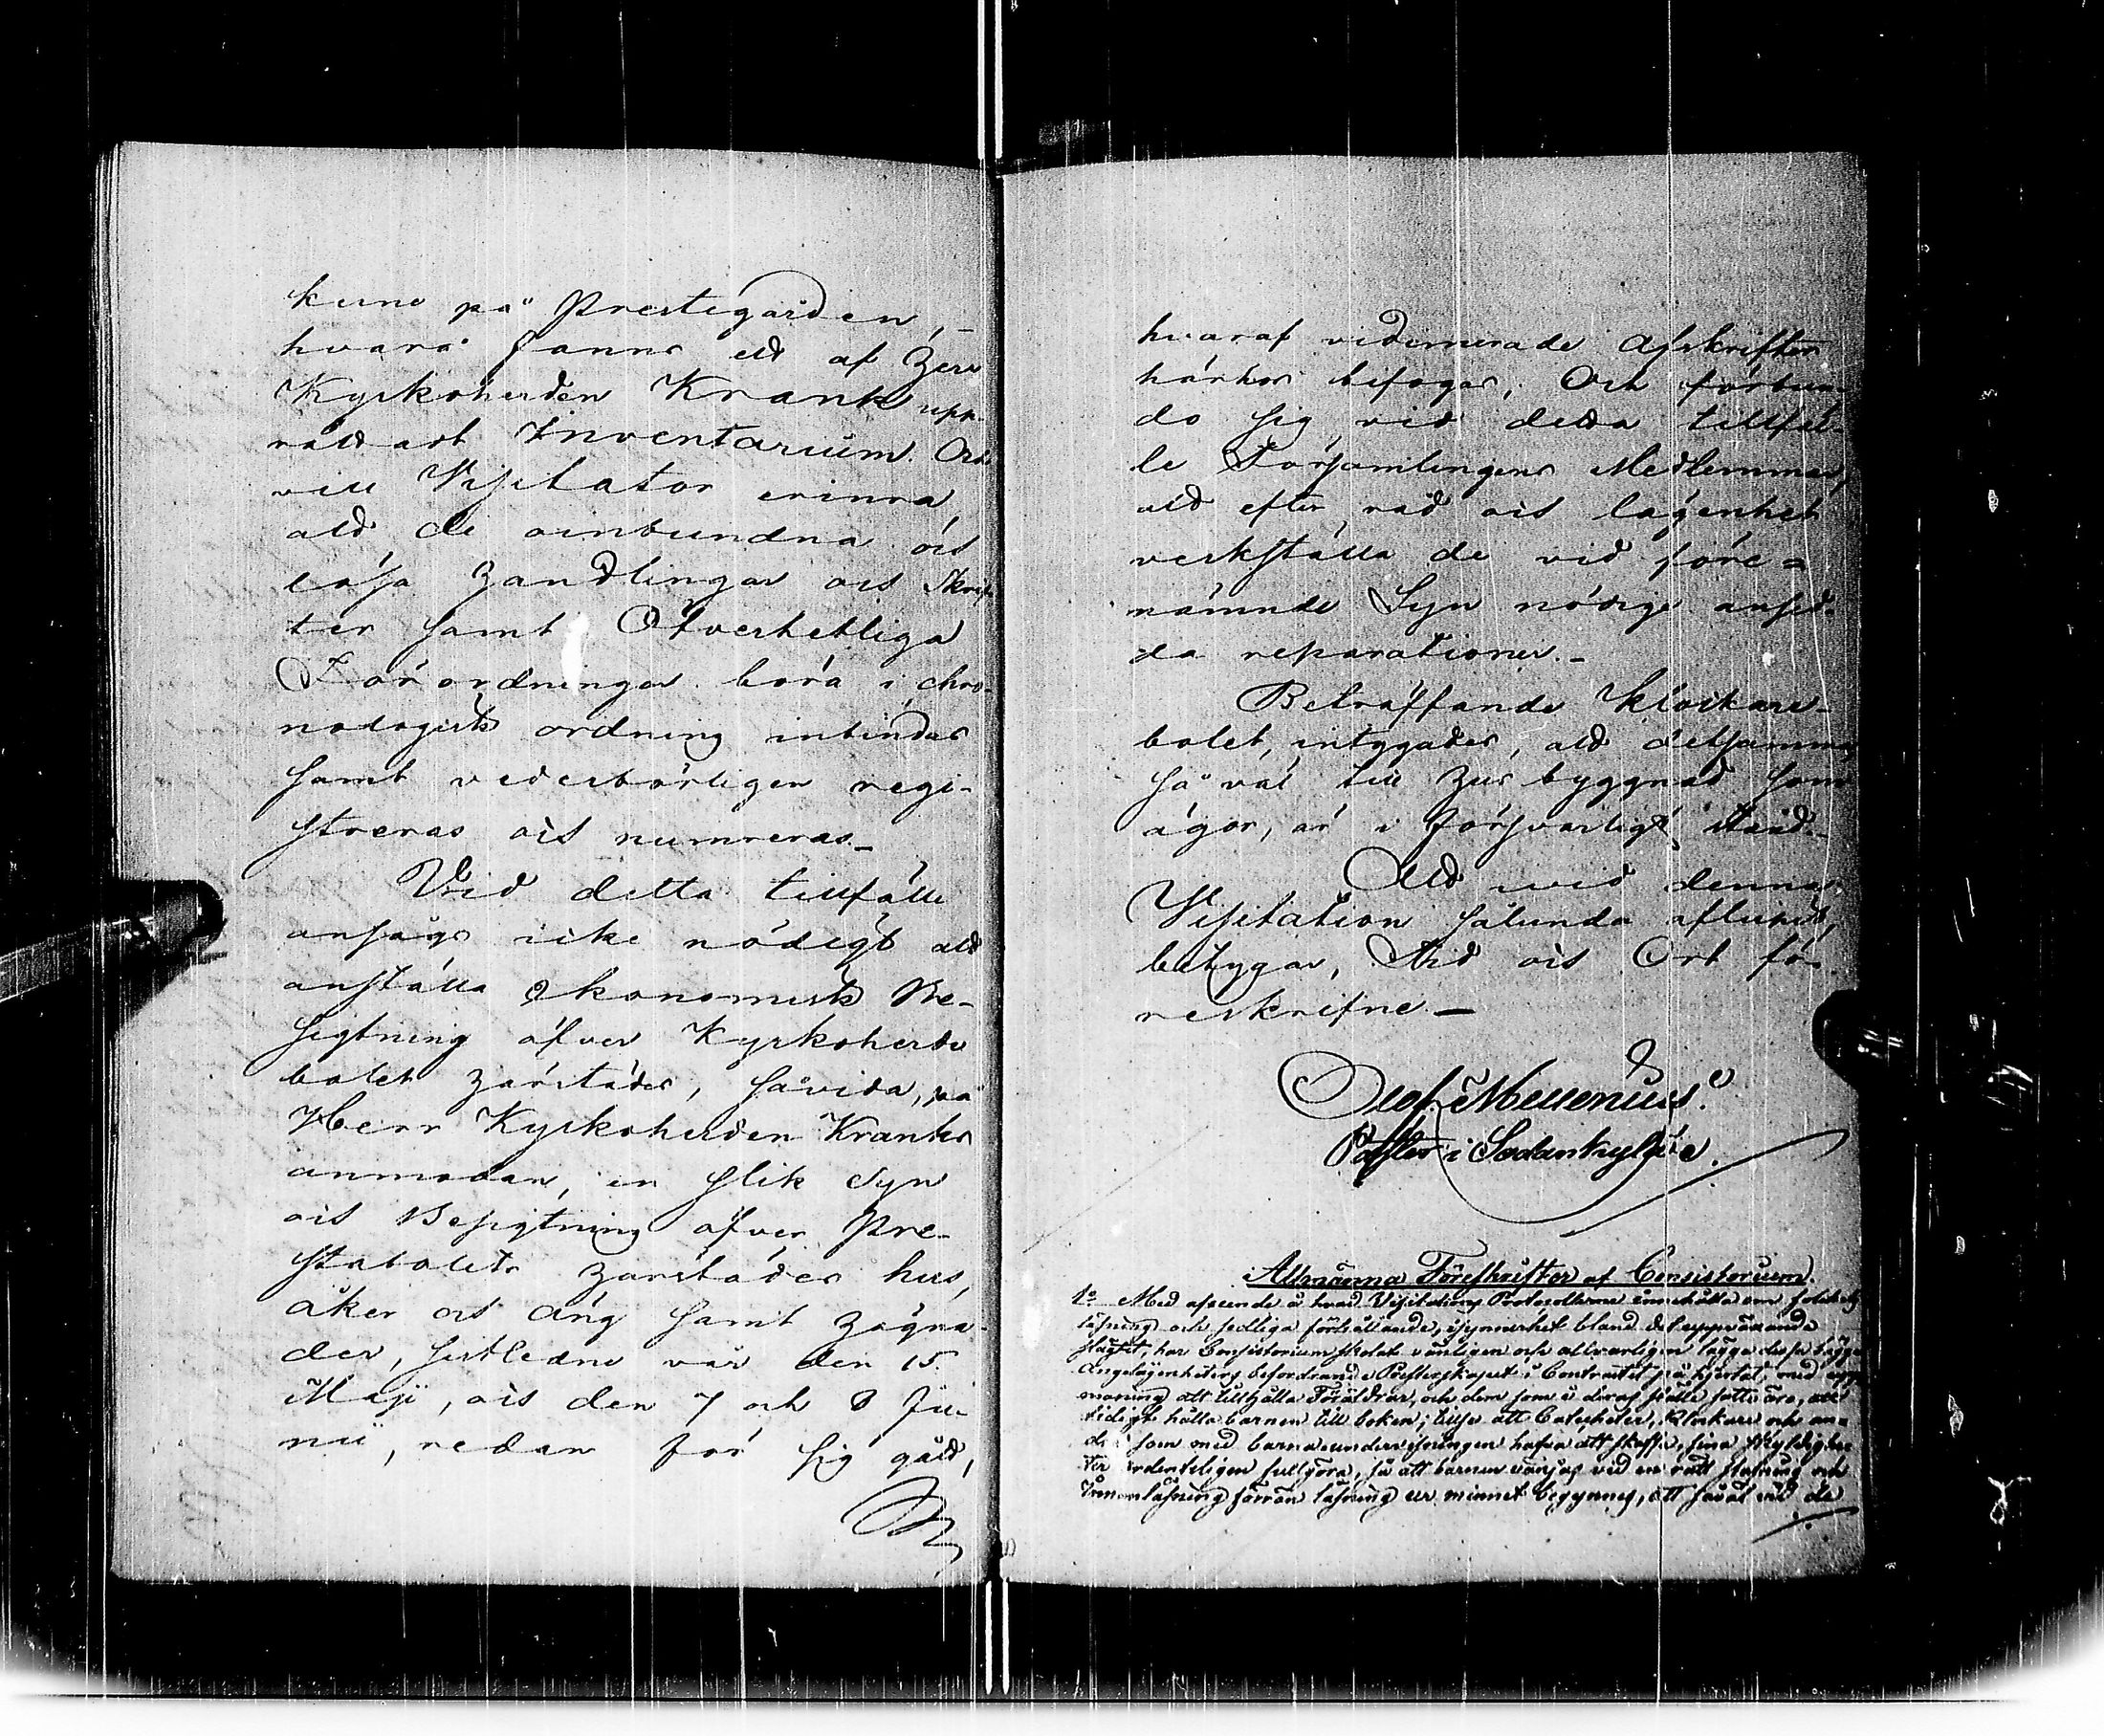 på Prestegården,
hvarå fanns ett af Herr
Kyrkoherden Krank upp-
rättadt Inventarium. Och
vill Visitator erinra,
att de oinbundna och
lösa Handlingar och Skrif-
ter samt Öfverhetliga
Förordningar böra i chro-
nologisk ordning inbindas
samt vederbörligen regi-
streras och numreras._
Vid detta tillfälle
ansågs icke nödigt att
anställa Ekonomisk Be-
sigtning öfver Kyrkoherde
bolet härstädes, såvida, på
Herr Kyrkoherden Kranks
anmodan, en slik Syn
och Besigtning öfver Pre-
stabolets härstädes hus,
åker och äng samt hägna-
der, sistledne vår den 15
Maji, och den 7 och 8 Ju-
nii, redan för sig gått,
hvaraf vidimerade Afskrifter
härhos bifogas; Och förbun-
do sig vid detta tillfäl-
le Församlingens Medlemmar,
att efter råd och lägenhet
verkställa de vid före-
nämnde Syn nödige ansed-
da reparationer._
Beträffande Klockare-
bolet, intygades, att detsamma,
så väl till husbyggnad som
ägor, är i försvarligt stånd._
Att vid denna
Visitation sålunda aflupit,
betygar, Tid och Ort fö-
reskrifne._
Olof Mellenius.
Pastor i Sodankylä.
Allmänna Föreskrifter af Consistorium.
1º Med afseende å hvad Visitations Protocollerne innehålla om
läsning och sedliga förhållande, isynnerhet bland det uppväxande
slägtet, har Consistorium skolat vänligen och allvarligen lägga dessa bägge
Angelägenheters befordrande Presterskapet i Contractet på hjertat, med upp-
maning att tillhålla Föräldrar, och dem som i deras ställe satte äro, att
tidigt hålla barnen till boken; tillse att Catecheter, Klockare och an-
dra som med barnaundervisningen hafva att skaffa, sina skyldighe-
ter ordenteligen fullgöra, så att barnen vänjas vid en rätt stafning och
innanläsning förrän läsning ur minnet begynnes, att såväl vid de